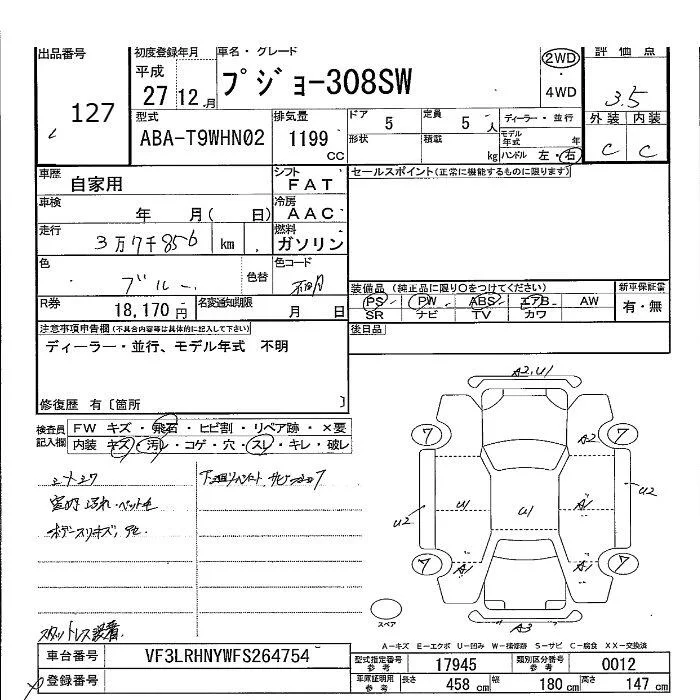 出品番号
127
初度登録年月
平成
27 12 月
車名・グレード
プジョー308SW
2WD
・
4WD
評価点
3.5
外装 内装
C C
型式
ABA-T9WHN02
排気量
1199
CC
ドア 5
定員 5 人
形状
積載 kg
ディーラー・並行
モデル年式 年
ハンドル 左・右
車歴
自家用
シフト
FAT
セールスポイント(正常に機能するものに限ります)
車検
年 月( 日)
冷房
AAC
走行
3万7千856 km
燃料
ガソリン
色
ブルー
色替
色コード
不明
R券
18,170円
名変通知期限
月 日
装備品 (純正品に限り○をつけてください)
PS PW ABS エアB AW
SR ナビ TV カワ
新車保証書
有・無
後日品
注意事項申告欄(不具合内容等は具体的に記入して下さい)
ディーラー・並行、モデル年式 不明
修復歴 有〔箇所 〕
検査員
記入欄
FW キズ・飛石・ヒビ割・リペア跡・×要
内装 キズ・汚レ・コゲ・穴・スレ・キレ・破レ
A2,U1
7 7
A2
U2 U1 U1 A1 U2
A1 A1
7 7
A1
A3
スペア
スタットレス装着
A-キズ E-エクボ U-凹み W-補修跡 S-サビ C-腐食 XX-交換済
車台番号
VF3LRHNYWFS264754
登録番号
型式指定番号
参考
17945
類別区分番号
参考
0012
車庫証明用
参考
長さ 458 cm 幅 180 cm 高さ 147 cm